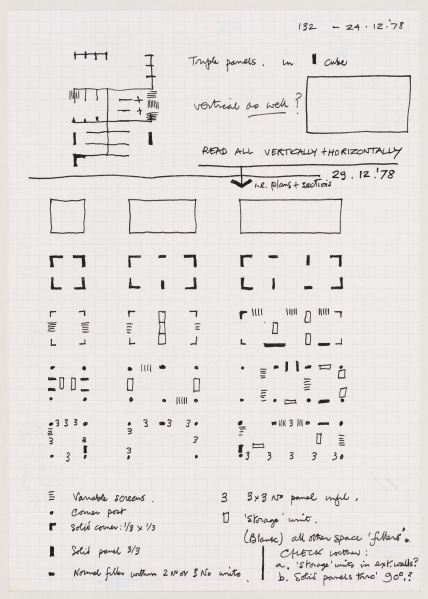 132 - 24.12.'78
Triple panels. in cube
vertical as well?
READ ALL VERTICALLY + HORIZONTALLY
i.e. plans + sections
29.12.'78
3 3 3
3 3
3
3
3
3
3
3
3 3 3 3 3
Variable screens.
Corner post
Solid corner: 1/3 x 1/3
Solid panel 3/3
Normal filler within 2 No or 3 No units.
3 3x3 No panel infill.
'Storage' unit.
(Blank) all other space 'fillers'.
CHECK
a. 'Storage' units in ext. walls?
b. Solid panels thro' 90°?